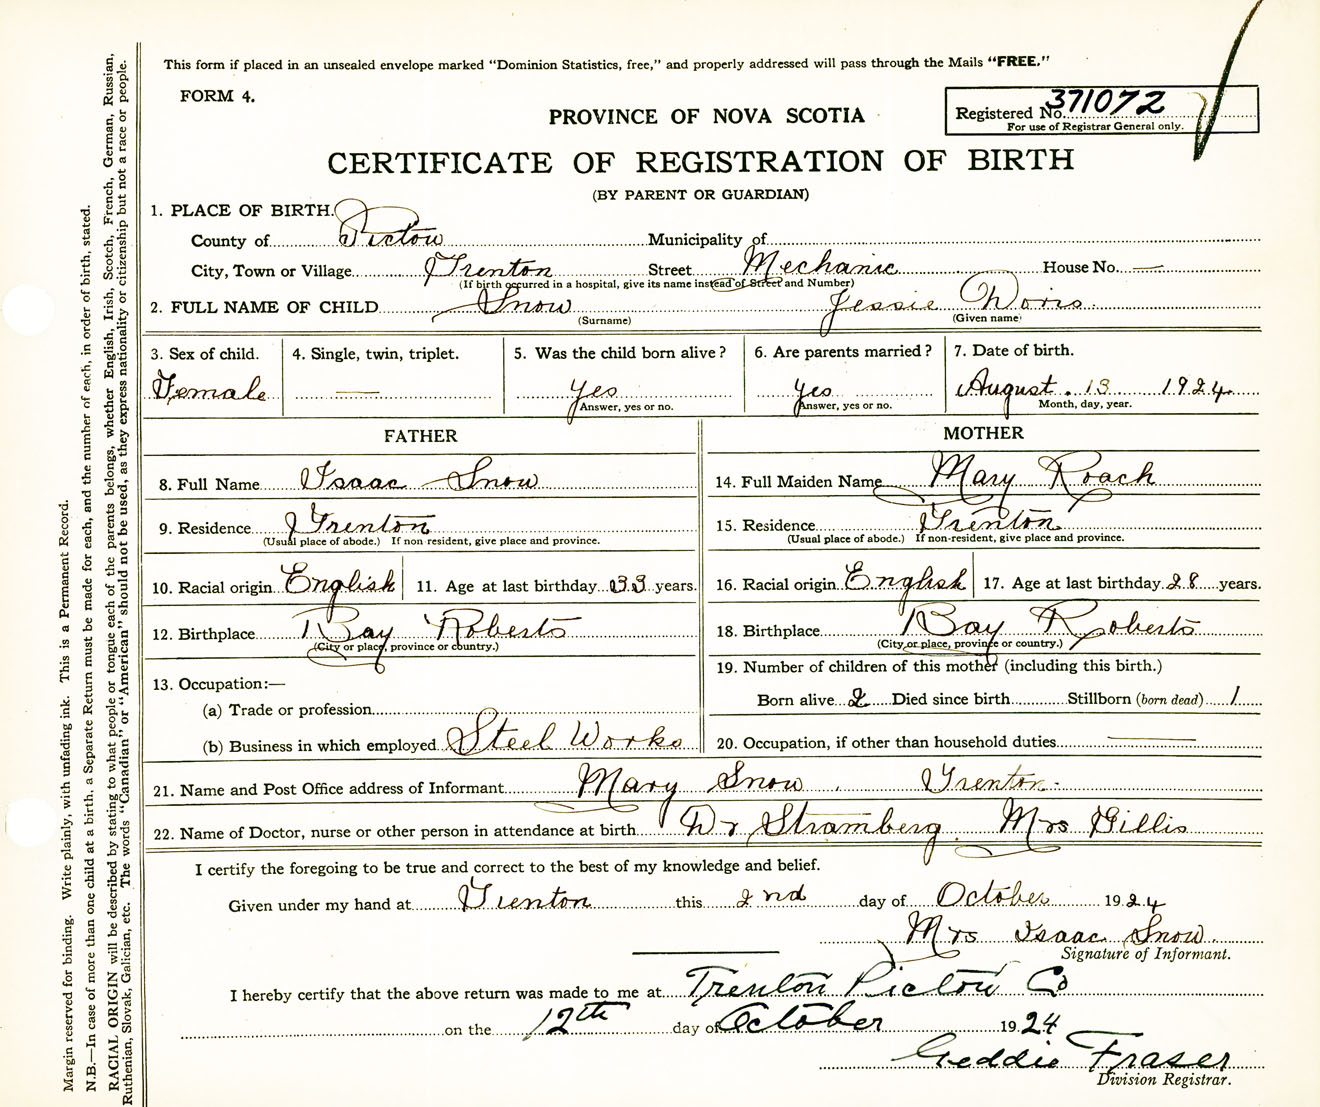 This form if placed in an unsealed envelope marked “Dominion Statistics, free,” and properly addressed will pass through the Mails “FREE.”
FORM 4.
Registered No. 371072
For use of Registrar General only.
PROVINCE OF NOVA SCOTIA
CERTIFICATE OF REGISTRATION OF BIRTH
(BY PARENT OR GUARDIAN)
1. PLACE OF BIRTH.
County of Pictou Municipality of
City, Town or Village Trenton Street Mechanic House No. —
(If birth occurred in a hospital, give its name instead of Street and Number)
2. FULL NAME OF CHILD Snow Jessie Doris
(Surname) (Given name)
3. Sex of child. 4. Single, twin, triplet. 5. Was the child born alive? 6. Are parents married? 7. Date of birth.
Female — yes yes August 13 1924
Answer, yes or no. Answer, yes or no. Month, day, year.
FATHER MOTHER
8. Full Name Isaac Snow 14. Full Maiden Name Mary Roach
9. Residence Trenton 15. Residence Trenton
(Usual place of abode.) If non resident, give place and province. (Usual place of abode.) If non-resident, give place and province.
10. Racial origin English 11. Age at last birthday 33 years. 16. Racial origin English 17. Age at last birthday 28 years.
12. Birthplace Bay Roberts 18. Birthplace Bay Roberts
(City or place, province or country.) (City or place, province or country.)
13. Occupation:— 19. Number of children of this mother (including this birth.)
(a) Trade or profession Born alive 2 Died since birth Stillborn (born dead) 1
(b) Business in which employed Steel Works 20. Occupation, if other than household duties —
21. Name and Post Office address of Informant Mary Snow. Trenton.
22. Name of Doctor, nurse or other person in attendance at birth Dr Stramberg. Mrs Gillis
I certify the foregoing to be true and correct to the best of my knowledge and belief.
Given under my hand at Trenton this 2nd day of October 1924
Mrs Isaac Snow.
Signature of Informant.
I hereby certify that the above return was made to me at Trenton Pictou Co
on the 12th day of October 1924
Geddie Fraser
Division Registrar.
Margin reserved for binding. Write plainly, with unfading ink. This is a Permanent Record.
N.B.—In case of more than one child at a birth, a Separate Return must be made for each, and the number of each, in order of birth, stated.
RACIAL ORIGIN will be described by stating to what people or tongue each of the parents belongs, whether English, Irish, Scotch, French, German, Russian,
Ruthenian, Slovak, Galician, etc. The words “Canadian” or “American” should not be used, as they express nationality or citizenship but not a race or people.